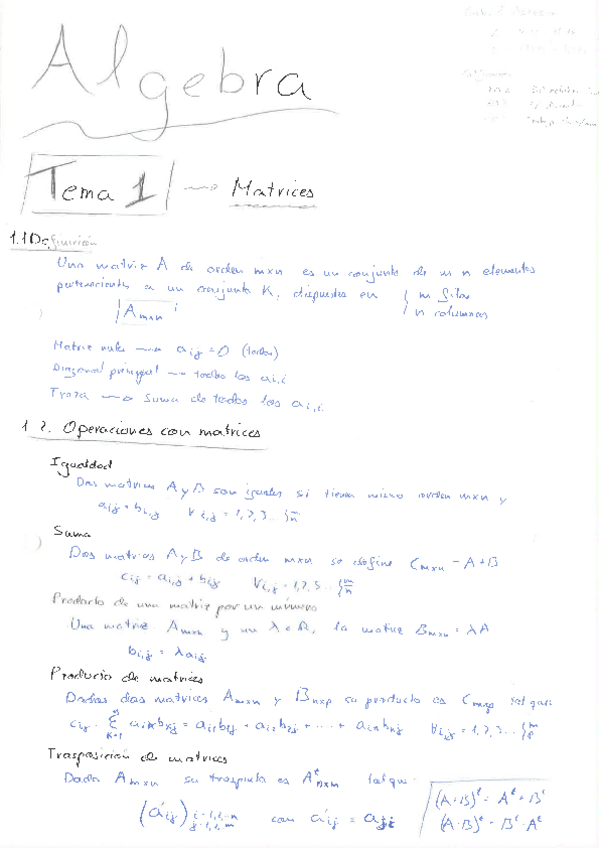 Algebra
Tema 1 → Matrices
1.1 Definición
Una matriz A de orden mxn es un conjunto de m n elementos
pertenecientes a un conjunto K, dispuestos en { m filas
A_mxn { n columnas
Matriz nula → a_ij = 0 (todos)
Diagonal principal → todos los a_i,i
Traza → Suma de todos los a_i,i
1.2. Operaciones con matrices
Igualdad
Dos matrices A y B son iguales si tienen mismo orden mxn y
a_ij = b_i,j ∀ i,j = 1,2,3... {m n
Suma
Dos matrices A y B de orden mxn se define C_mxn = A+B
c_ij = a_i,j + b_ij ∀ i,j = 1,2,3... {m n
Producto de una matriz por un número
Una matriz A_mxn y un λ ∈ R, la matriz B_mxn = λA
b_i,j = λ a_ij
Producto de matrices
Dadas dos matrices A_mxn y B_nxp su producto es C_mxp tal que:
c_ij = Σ a_ik b_kj = a_i1 b_1j + a_i2 b_2j + ... + a_in b_nj ∀ i,j = 1,2,3... {m p
K=1
Trasposición de matrices
Dada A_mxn su traspuesta es A^t_nxm tal que
(a'_ij) i=1,2..n j=1,2..m con a'_ij = a_ji
(A+B)^t = A^t + B^t
(A·B)^t = B^t · A^t